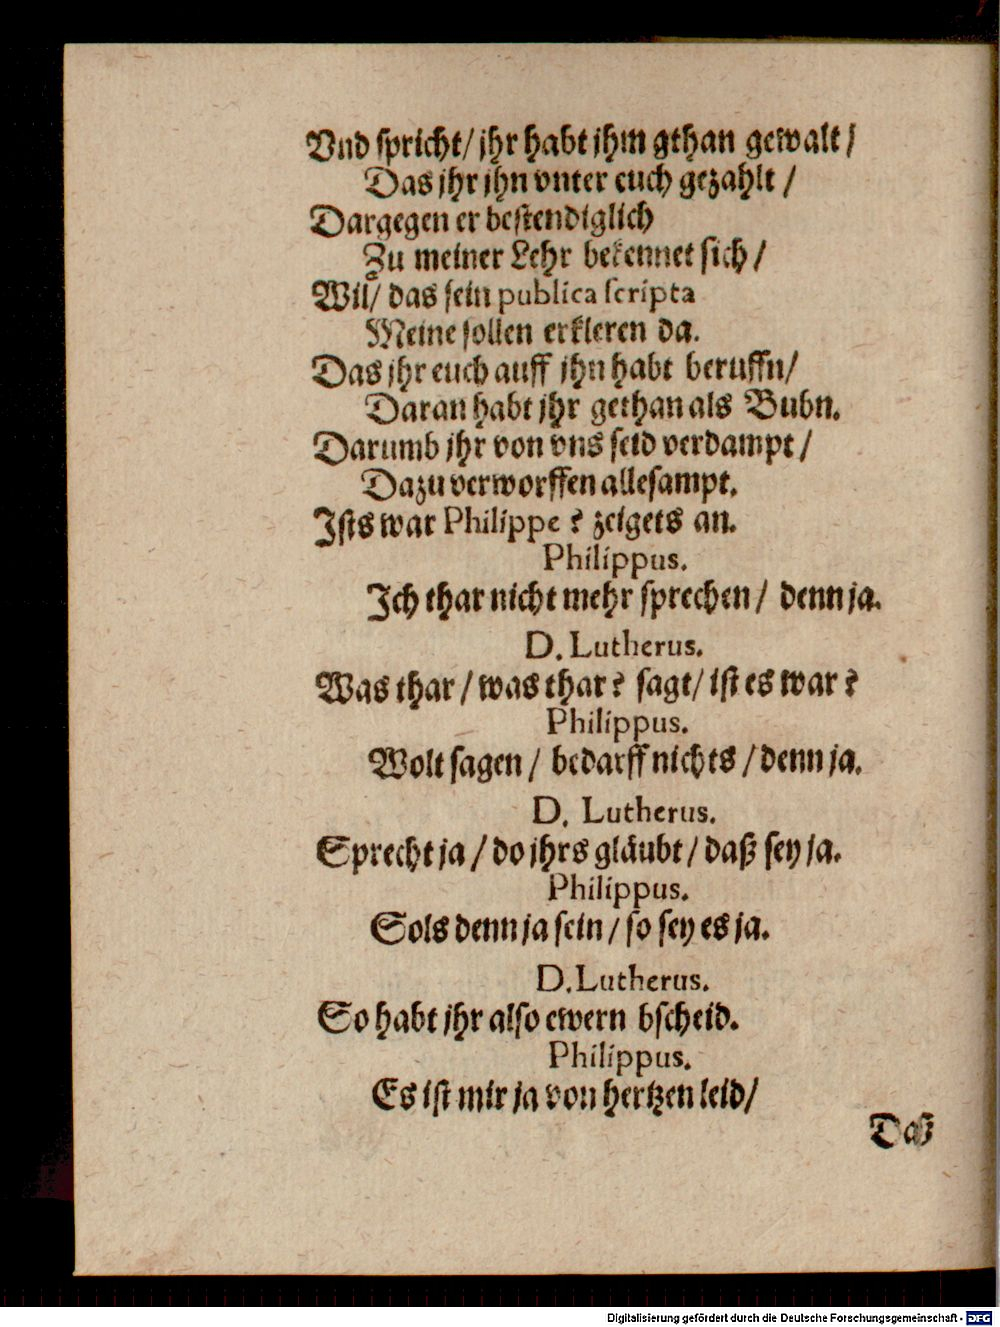 Vnd spricht/ jhr habt jhm gthan gewalt/
Das jhr jhn vnter euch gezahlt /
Dargegen er bestendiglich
Zu meiner Lehr bekennet sich /
Wil/ das sein publica scripta
Meine sollen erkleren da.
Das jhr euch auff jhn habt beruffn/
Daran habt jhr gethan als Bubn.
Darumb jhr von vns seid verdampt /
Dazu verworffen allesampt.
Ists war Philippe ? zeigets an.
Philippus.
Ich thar nicht mehr sprechen / denn ja.
D. Lutherus.
Was thar / was thar ? sagt/ ist es war ?
Philippus.
Wolt sagen / bedarff nichts / denn ja.
D. Lutherus.
Sprecht ja / do jhrs gläubt / daß sey ja.
Philippus.
Sols denn ja sein / so sey es ja.
D. Lutherus.
So habt jhr also ewern bscheid.
Philippus.
Es ist mir ja von hertzen leid/
Daß
Digitalisierung gefördert durch die Deutsche Forschungsgemeinschaft - DFG